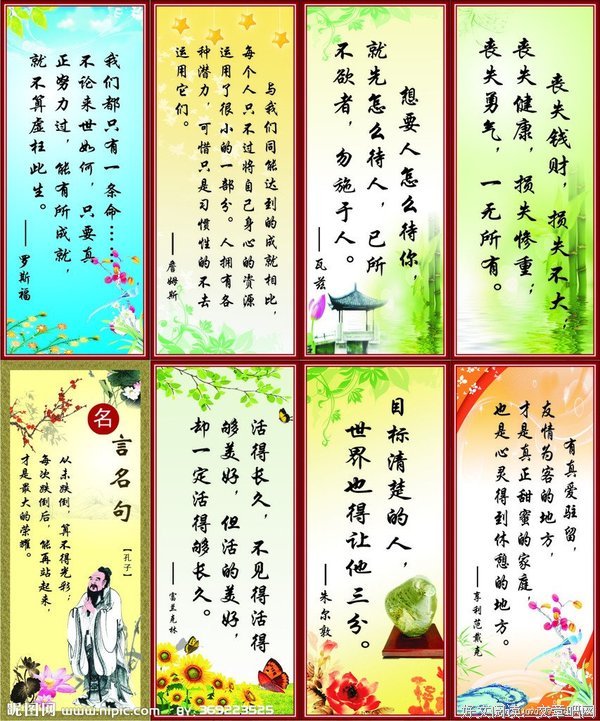 我们都只有一条命……
不论来世如何，只要真
正努力过，能有所成就，
就不算虚枉此生。
——罗斯福
与我们同能达到的成就相比，
每个人只不过将自己身心的资源
运用了很小的一部分。人拥有各
种潜力，可惜只是习惯性的不去
运用它们。
——詹姆斯
想要人怎么待你，
就先怎么待人，已所
不欲者，勿施于人。
——瓦兹
丧失钱财，损失不大；
丧失健康，损失惨重；
丧失勇气，一无所有。
名言名句
【孔子】
从未跌倒，算不得光彩；
每次跌倒后，能再站起来，
才是最大的荣耀。
活得长久，不见得活得
够美好，但活的美好，
却一定活得够长久。
——富兰克林
目标清楚的人，
世界也得让他三分。
——朱尔敦
有真爱驻留，
友情为客的地方，
才是真正甜蜜的家庭
也是心灵得到休憩的地方。
——亨利范戴克
昵图网 www.nipic.com BY: 369223525
文章吧网